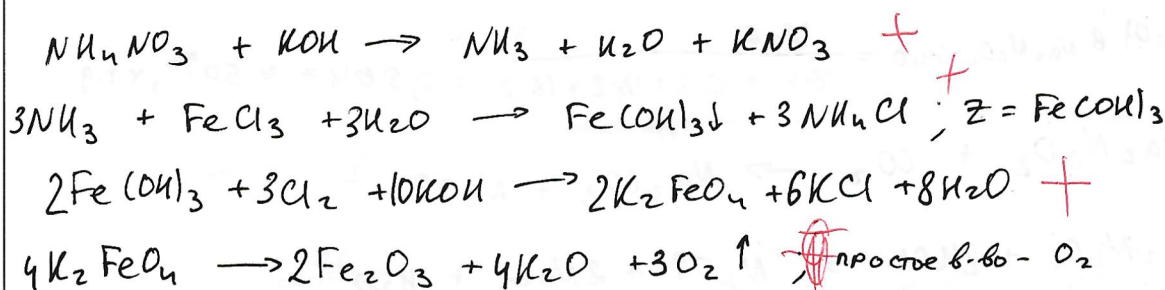 NH₄NO₃ + KOH → NH₃ + H₂O + KNO₃ +
3NH₃ + FeCl₃ + 3H₂O → Fe(OH)₃↓ + 3NH₄Cl ; Z = Fe(OH)₃ +
2Fe(OH)₃ + 3Cl₂ + 10KOH → 2K₂FeO₄ + 6KCl + 8H₂O +
4K₂FeO₄ → 2Fe₂O₃ + 4K₂O + 3O₂↑ ; простое в-во - O₂